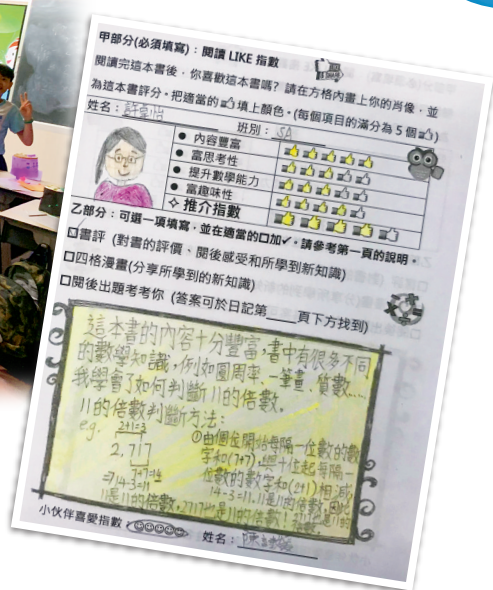 甲部分(必須填寫)：閱讀 LIKE 指數
閱讀完這本書後，你喜歡這本書嗎？請在方格內畫上你的肖像，並
為這本書評分，把適當的填上顏色。(每個項目的滿分為 5 個)
姓名：許卓怡 班別：5A
● 內容豐富
● 富思考性
● 提升數學能力
● 富趣味性
✧ 推介指數
乙部分：可選一項填寫，並在適當的口加✓，請參考第一頁的說明。
口書評 (對書的評價、閱後感受和所學到新知識)
口四格漫畫(分享所學到的新知識)
口閱後出題考考你 (答案可於日記第____頁下方找到)
這本書的內容十分豐富，書中有很多不同
的數學知識，例如圓周率、一筆畫、質數....
我學會了如何判斷11的倍數。
11的倍數判斷方法：
e.g. 2+1=3
2,717
7+7=14
⇒14-3=11
①由個位開始每隔一位數的數
字和(7+7)，與十位起每隔一
位數的數字和(2+1)相減
14-3=11，11是11的倍數，因此
11是11的倍數，2717也是11的倍數！
小伙伴喜愛指數：
姓名：